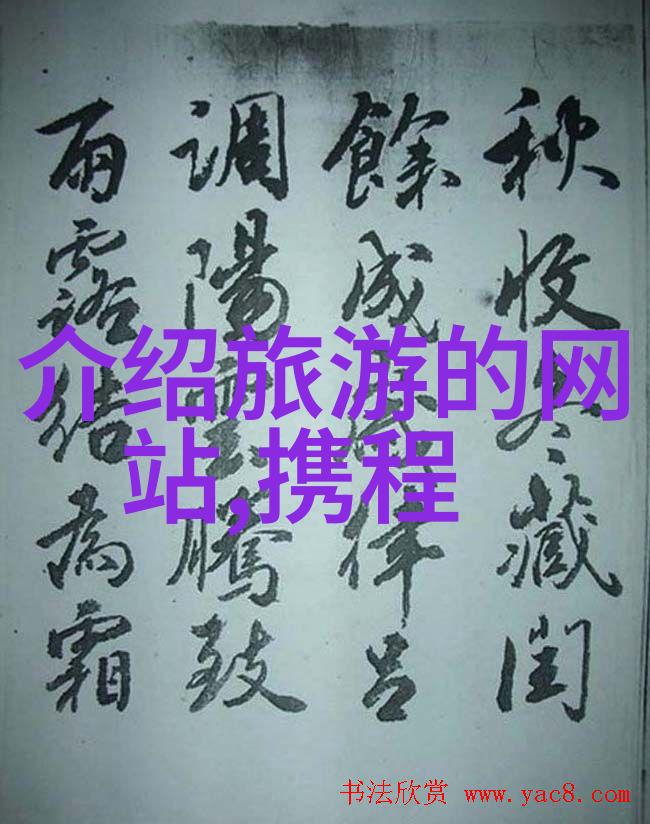 秋收冬藏閏
餘成歲律呂
調陽雲騰致
雨露結為霜
介绍旅游的网
站,携程
书法欣赏 www.yac8.com